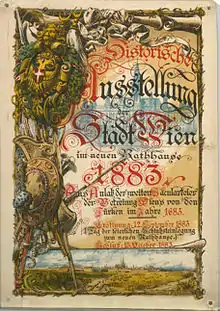 Historische
Ausstellung
der
Stadt Wien
im neuen Rathhause
1883
Aus Anlaß der zweiten Säcularfeier
der Befreiung Wiens von den
Türken im Jahre 1683.
Eröffnung: 12. September 1883
Tag der feierlichen Schlußsteinlegung
zum neuen Rathhause
Schluß: 15. October 1883